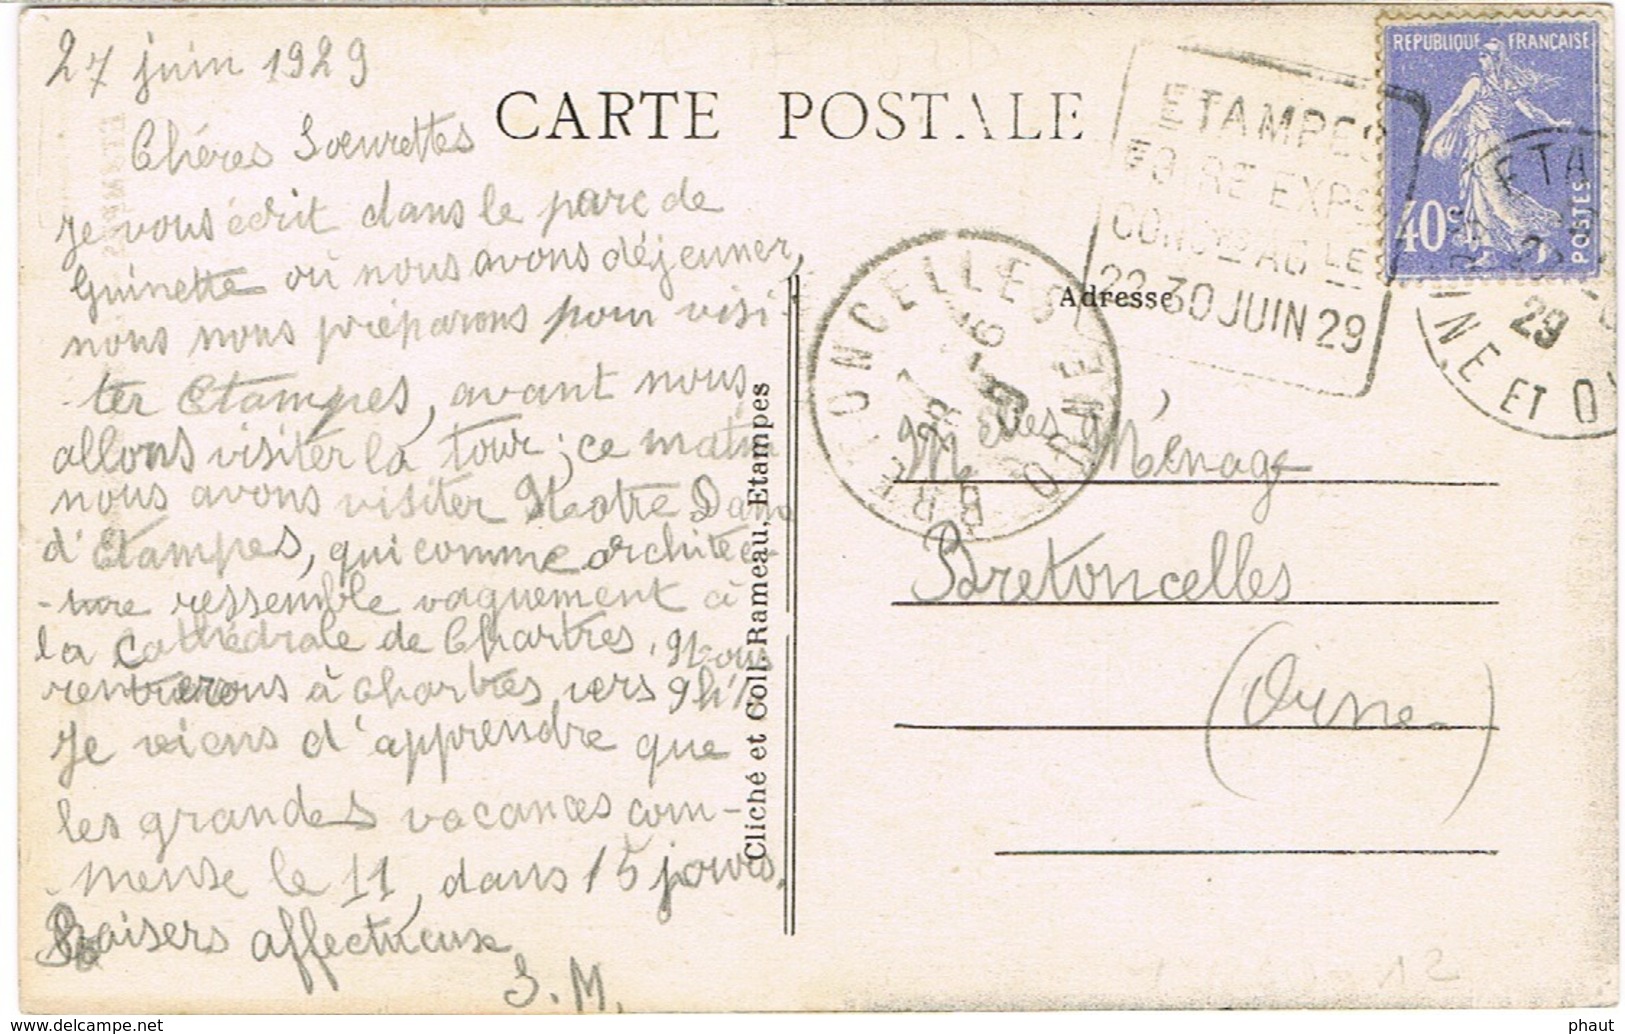 27 juin 1929
Chéres Soeurettes
Je vous écrit dans le parc de
Guinette où nous avons déjeuner,
nous nous préparons pour visi-
ter Etampes, avant nous
allons visiter la tour; ce matin
nous avons visiter Notre Dame
d'Etampes, qui comme architec-
-ture ressemble vaguement à
la Cathédrale de Chartres. Nous
rentrerons à Chartres vers 9h
Je viens d'apprendre que
les grandes vacances com-
-mense le 11, dans 15 jours.
Baisers affectueux
S. M.
CARTE POSTALE
Cliché et Coll. Rameau, Etampes
ETAMPES
FOIRE EXPO
CONC AG LE
22-30 JUIN 29
REPUBLIQUE FRANÇAISE
40c
POSTES
ETA
29
INE ET O
BRETONCELLES
ORNE
Adresse
Melles Ménage
Bretoncelles
(Orne)
12
delcampe.net
phaut